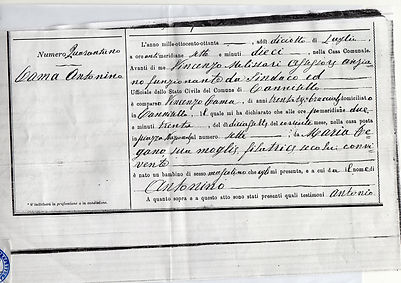 Numero Quarantuno
Cama Antonino
L'anno mille-ottocento-ottanta —, addì diciotto di Luglio —,
a ore antimeridiane sette e minuti dieci —, nella Casa Comunale.
Avanti di me Vincenzo Melissari assessore anzia
no funzionante da Sindaco ed
Uffiziale dello Stato Civile del Comune di Cannitello
è comparso Vincenzo Cama, di anni domiciliato
in Cannitello, il quale mi ha dichiarato che alle ore pomeridiane due
e minuti trenta, del dì diciassette del corrente mese, nella casa posta
in al numero sette, da Maria
gano sua moglie, filatrice seco lui convi
vente
è nato un bambino di sesso mascolino che egli mi presenta, e a cui dà il nome di
Antonino
A quanto sopra e a questo atto sono stati presenti quali testimoni Antonio